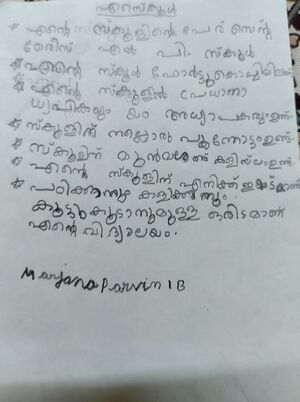 എന്റെസ്കൂൾ
* എന്റെ സ്കൂളിന്റെ പേര് സെന്റ്
മേരീസ് എൽ. പി. സ്കൂൾ
* എന്റെ സ്കൂൾ ഫോർട്ടുകൊച്ചിയിലാണ്
* എന്റെ സ്കൂളിൽ പ്രധാനാ
ധ്യപികയും യം അധ്യാപകരും ഉണ്ട്
* സ്കൂളിന് നല്ലൊരു പൂന്തോട്ടം ഉണ്ട്.
* സ്കൂളിന് മുൻവശത്ത് കളിസ്ഥലം ഉണ്ട്.
* എന്റെ സ്കൂളിന് എനിക്ക് ഇഷ്ടമാണ്
* പഠിക്കാനും കളിക്കാനും
കൂട്ടുകൂടാനുമുള്ള ഒരിടമാണ്
എന്റെ വിദ്യാലയം.
Marjana Parvin 1B